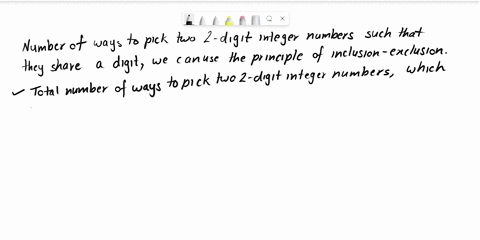 Number of ways to pick two 2-digit integer numbers such that
they share a digit, we can use the principle of inclusion-exclusion.
✓ Total number of ways to pick two 2-digit integer numbers, which